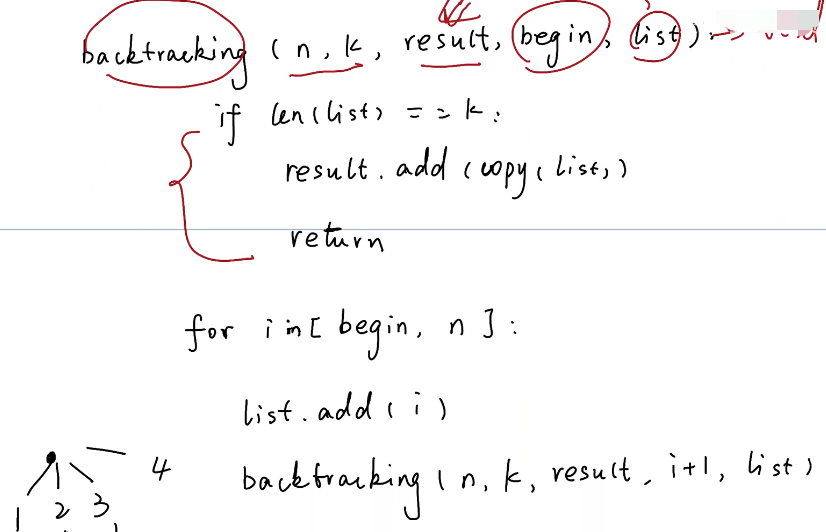 backtracking (n, k, result, begin, list) → void
if len(list) == k:
result.add(copy(list,)
return
for i in [begin, n]:
list.add(i)
4 backtracking(n, k, result, i+1, list)
1 2 3